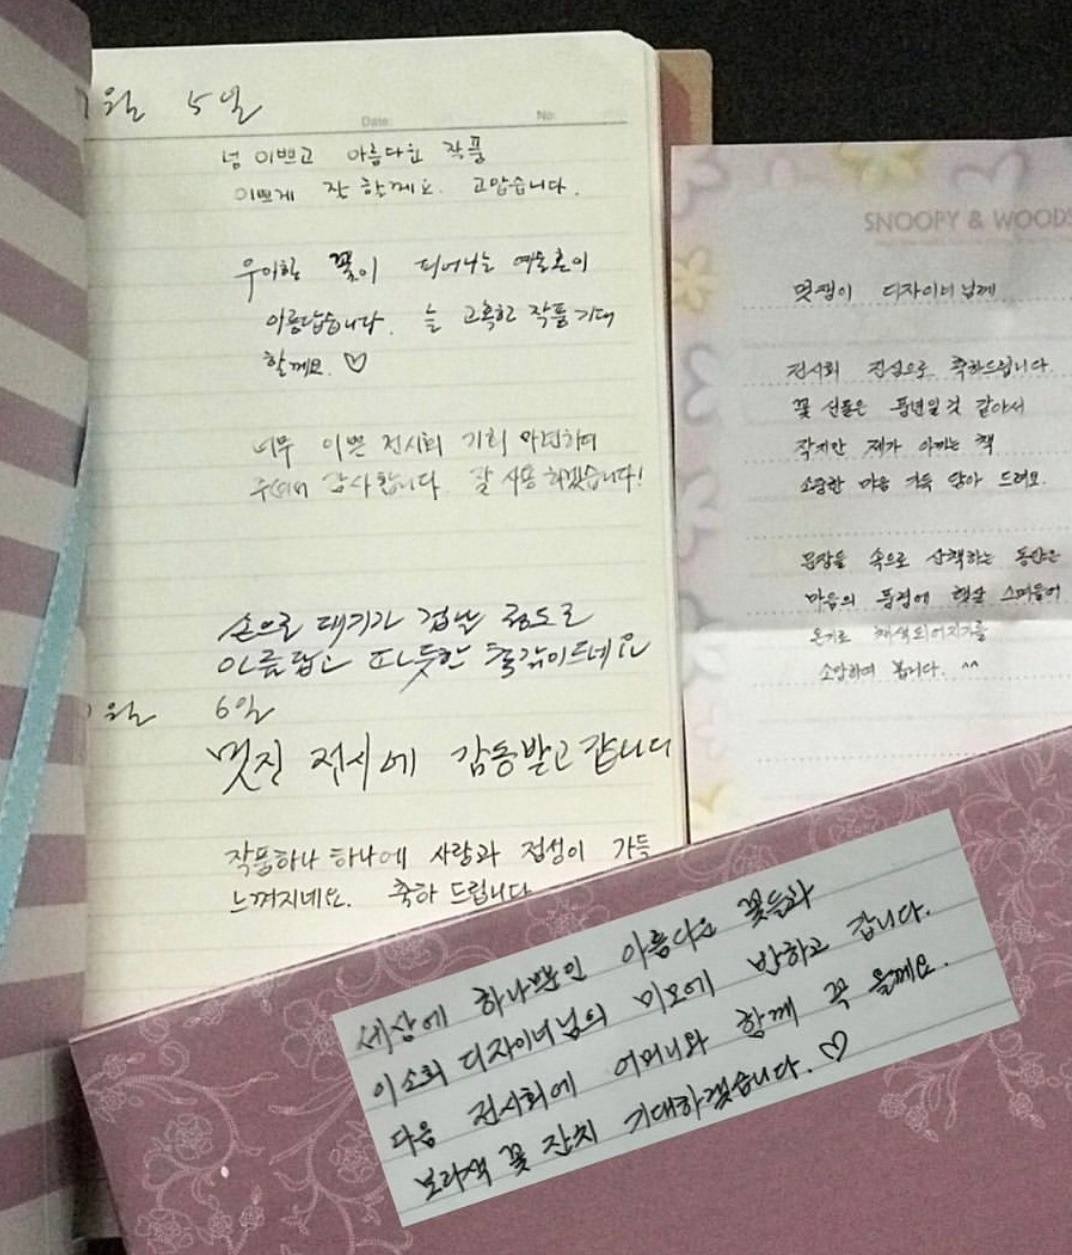 월 5일
Date:
No:
넘 이쁘고 아름다운 작품
이쁘게 잘 할께요. 고맙습니다.
우아한 꽃이 피어나는 예술혼이
아름답습니다. 늘 고혹한 작품 기대
할께요. ♡
너무 이쁜 전시회 기회 마련하여
주셔서 감사합니다. 잘 사용하겠습니다!
손으로 대기가 겁날 정도로
아름답고 따듯한 이드네요
월 6일
멋진 전시에 감동받고 갑니다
작품하나 하나에 사랑과 정성이 가득
느껴지네요. 축하 드립니다
SNOOPY & WOODS
멋쟁이 디자이너님께
전시회 진심으로 축하드립니다.
꽃 선물은 풍년일것 같아서
작지만 제가 아끼는 책
소중한 마음 가득 담아 드려요.
문장들 속으로 산책하는 동안은
마음의 풍경에 햇살 스며들어
온기로 채색되어지기를
소망하여 봅니다. ^^
세상에 하나뿐인 아름다운 꽃들과
이소희 디자이너님의 미모에 반하고 갑니다.
다음 전시회에 어머니와 함께 꼭 올께요.
보라색 꽃 잔치 기대하겠습니다. ♡